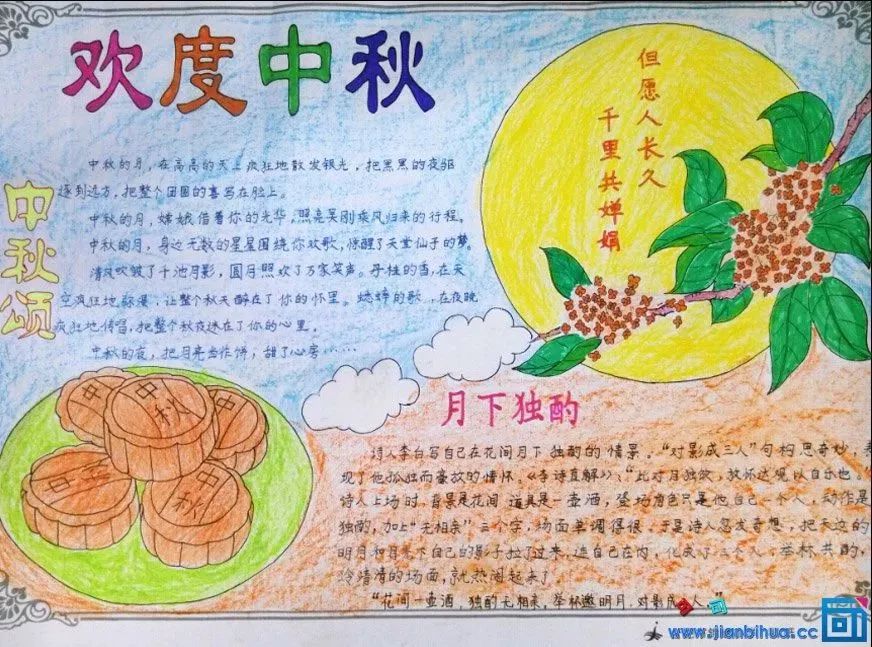 欢度中秋
但愿人长久
千里共婵娟
中秋颂
中秋的月，在高高的天上疯狂地散发银光，把黑黑的夜驱
逐到远方，把整个团圆的喜写在脸上。
中秋的月，嫦娥借着你的光华，照亮吴刚乘风归来的行程。
中秋的月，身边无数的星星围绕你欢歌，惊醒了天堂仙子的梦。
清风吹皱了千池月影，圆月照欢了万家笑声。丹桂的香，在天
空疯狂地弥漫，让整个秋天醉在了你的怀里。蟋蟀的歌，在夜晚
疯狂地传唱，把整个秋夜迷在了你的心里。
中秋的夜，把月亮当作饼，甜了心房……
中秋
中秋
中秋
中秋
月下独酌
诗人李白写自己在花间月下独酌的情景。“对影成三人”句构思奇妙，表
现了他孤独而豪放的情怀。《李诗直解》：“此对月独饮，放怀达观以自乐也。
诗人上场时，背景是花间，道具是一壶酒，登场角色只是他自己一个人，动作是
独酌，加上“无相亲”三个字，场面单调得很。于是诗人忽发奇想，把天边的
明月和月光下自己的影子拉了过来，连自己在内，化成了三个人，举杯共酌，
冷清清的场面，就热闹起来了
“花间一壶酒，独酌无相亲，举杯邀明月，对影成 人。”
www.jianbihua.cc